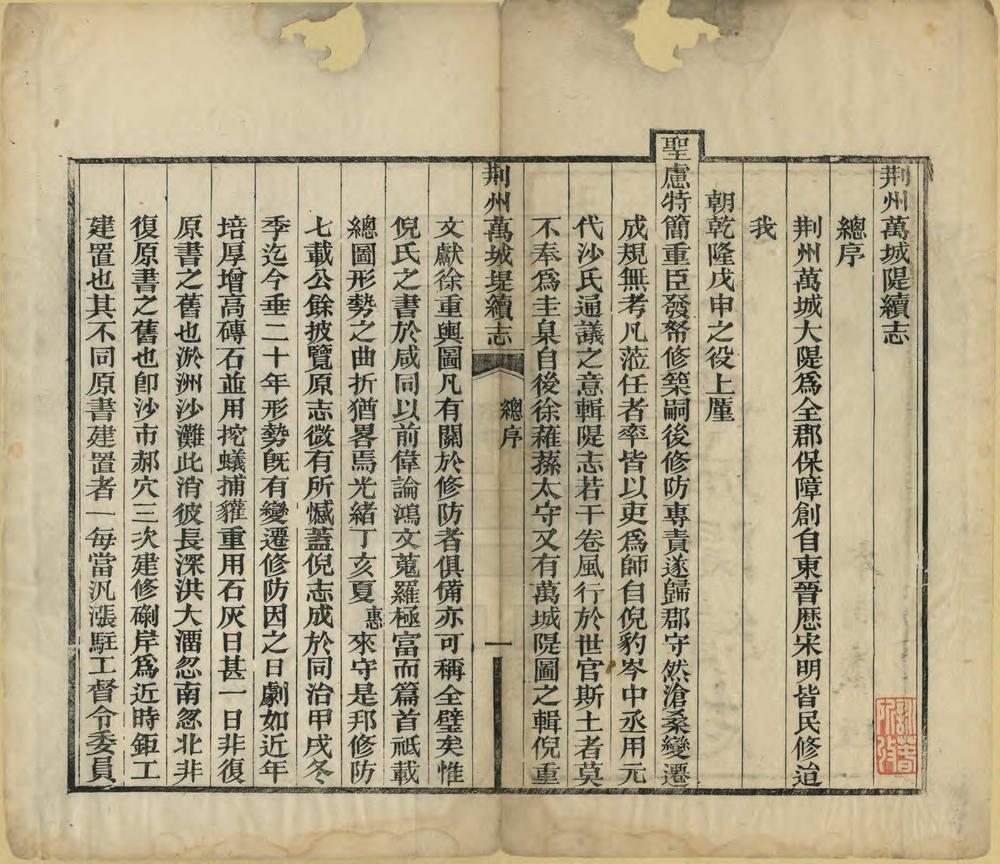 荆州萬城隄續志
總序
荆州萬城大隄爲全郡保障創自東晉歷宋明皆民修迨
我
朝乾隆戊申之役上廑
聖慮特簡重臣發帑修築嗣後修防專責遂歸郡守然滄桑變遷
成規無考凡涖任者率皆以吏爲師自倪豹岑中丞用元
代沙氏通議之意輯隄志若干卷風行於世官斯土者莫
不奉爲圭臬自後徐蘿蓀太守又有萬城隄圖之輯倪重
荆州萬城堤續志
總序
一
文獻徐重輿圖凡有關於修防者俱備亦可稱全璧矣惟
倪氏之書於咸同以前偉論鴻文蒐羅極富而篇首祗載
總圖形勢之曲折猶畧焉光緒丁亥夏惠來守是邦修防
七載公餘披覽原志微有所憾蓋倪志成於同治甲戌冬
季迄今垂二十年形勢旣有變遷修防因之日劇如近年
培厚增高磚石並用挖蟻捕獾重用石灰日甚一日非復
原書之舊也淤洲沙灘此消彼長深洪大溜忽南忽北非
復原書之舊也卽沙市郝穴三次建修磡岸爲近時鉅工
建置也其不同原書建置者一每當汛漲駐工督令委員